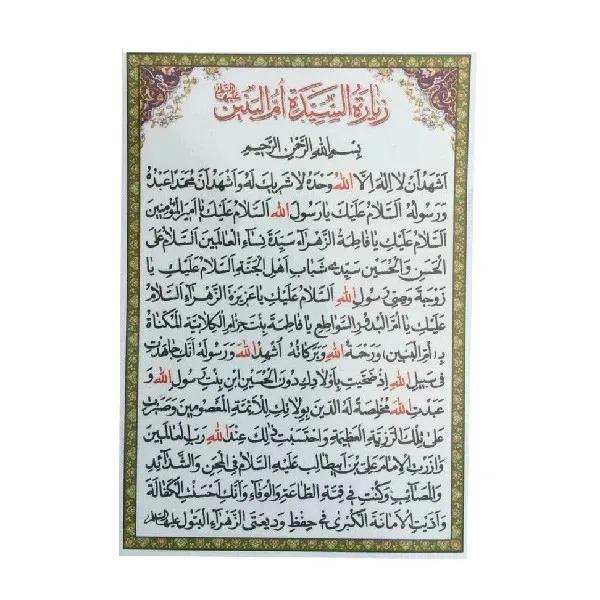 زيارة السيدة أم البنين عليها السلام
بسم الله الرحمن الرحيم
اشهد ان لا إله إلا الله وحده لا شريك له واشهد ان محمدا عبده
ورسوله السلام عليك يا رسول الله السلام عليك يا امير المؤمنين
السلام عليك يا فاطمة الزهراء سيدة نساء العالمين السلام على
الحسن والحسين سيدي شباب اهل الجنة السلام عليك يا
زوجة وصي رسول الله السلام عليك يا عزيزة الزهراء السلام
عليك يا أم البدور السواطع يا فاطمة بنت حزام الكلابية المكناة
بـ(أم البنين) ورحمة الله وبركاته اشهد الله ورسوله أنك جاهدت
في سبيل الله إذ ضحيت بأولادك دون الحسين ابن بنت رسول الله و
عبدت الله مخلصة له الدين بولائك للأئمة المعصومين وصبرت
على تلك الرزية العظيمة واحتسبت ذلك عند الله رب العالمين
وازرت الإمام علي بن أبي طالب عليه السلام في المحن والشدائد
والمصائب وكنت في قمة الطاعة والوفاء وأنك احسنت الكفالة
وأديت الأمانة الكبرى في حفظ وديعتي الزهراء البتول عليها السلام